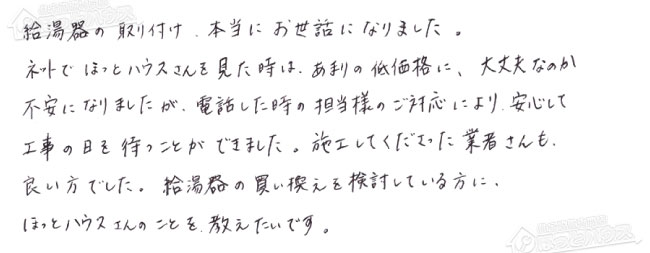 給湯器の取り付け、本当にお世話になりました。
ネットでほっとハウスさんを見た時は、あまりの低価格に、大丈夫なのか
不安になりましたが、電話した時の担当様のご対応により、安心して
工事の日を待つことができました。施工してくださった業者さんも、
良い方でした。給湯器の買い換えを検討している方に、
ほっとハウスさんのことを、教えたいです。